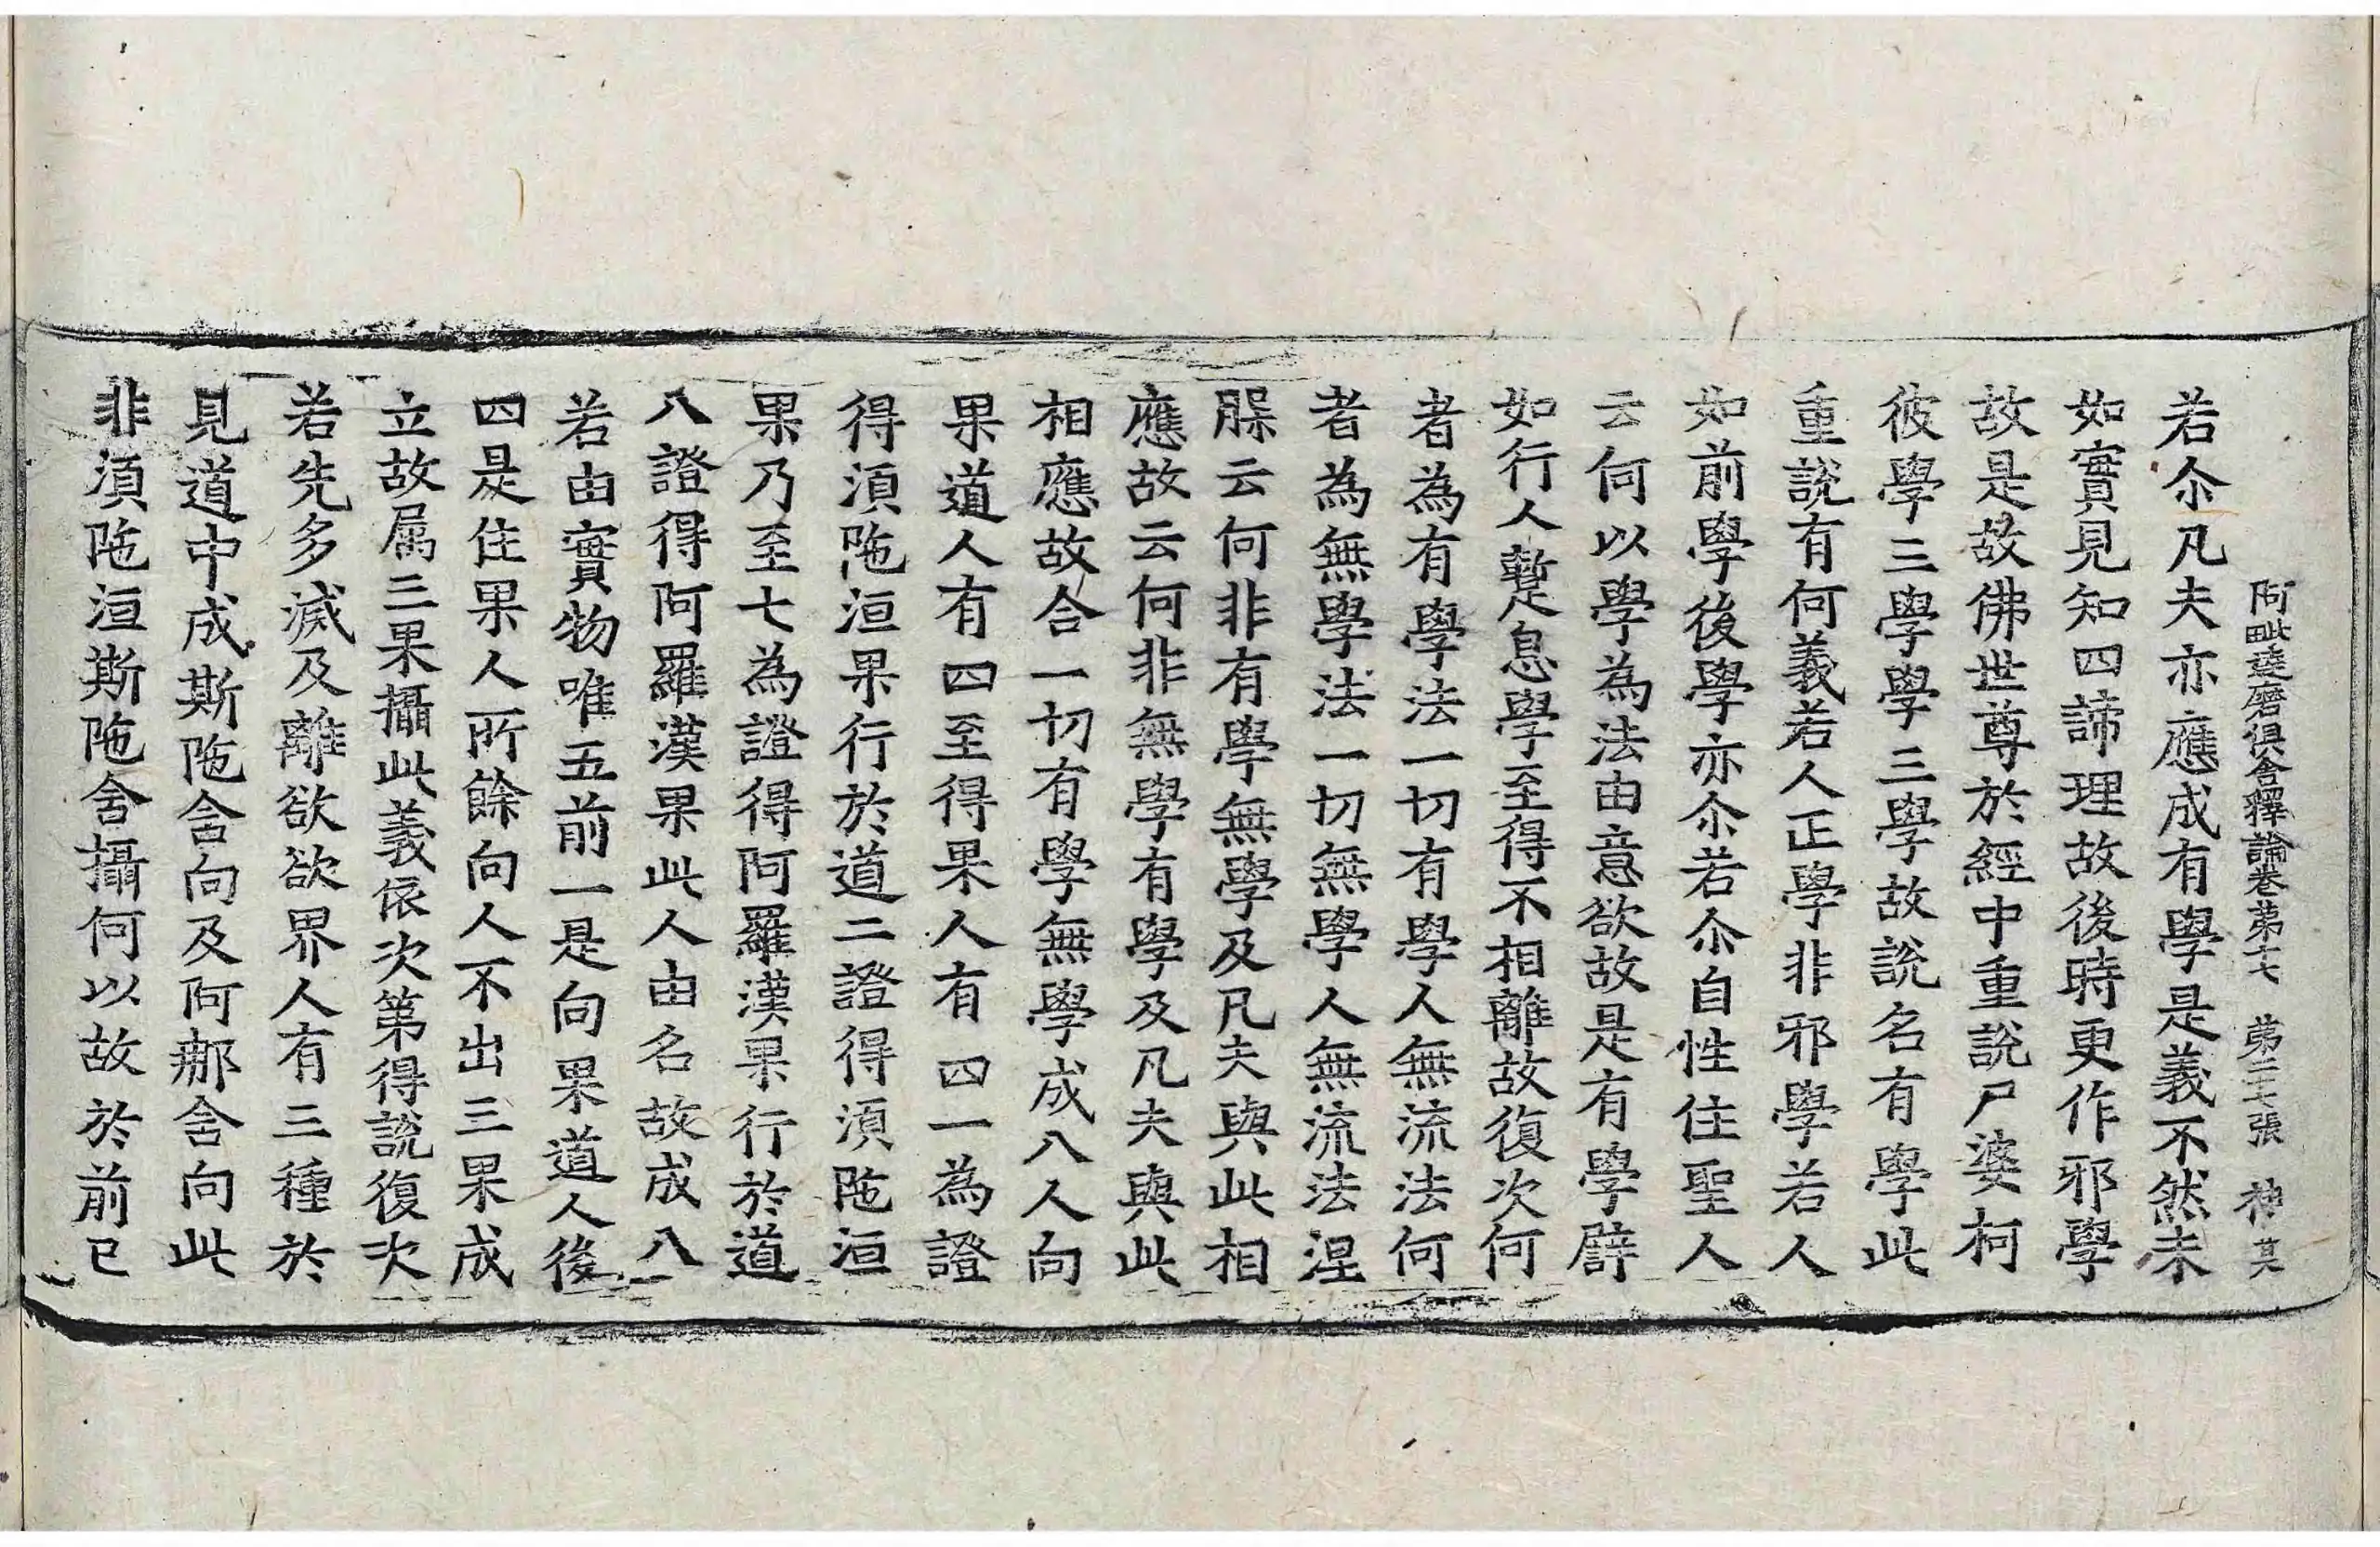 阿毗達磨俱舍釋論卷第十七 第二十七張 神 其
若尒凡夫亦應成有學是義不然未
如實見知四諦理故後時更作邪學
故是故佛世尊於經中重說尸婆柯
彼學三學學三學故說名有學此
重說有何義若人正學非邪學若人
如前學後學亦尒若尒自性住聖人
云何以學為法由意欲故是有學譬
如行人蹔息學至得不相離故復次何
者為有學法一切有學人無流法何
者為無學法一切無學人無流法涅
槃云何非有學無學及凡夫與此相
應故云何非無學有學及凡夫與此
相應故合一切有學無學成八人向
果道人有四至得果人有四一為證
得須陁洹果行於道二證得須陁洹
果乃至七為證得阿羅漢果行於道
八證得阿羅漢果此人由名故成八
若由實物唯五前一是向果道人後
四是住果人所餘向人不出三果成
立故属三果攝此義依次第得說復次
若先多滅及離欲欲界人有三種於
見道中成斯陁含向及阿那含向此
非須陁洹斯陁含攝何以故於前已